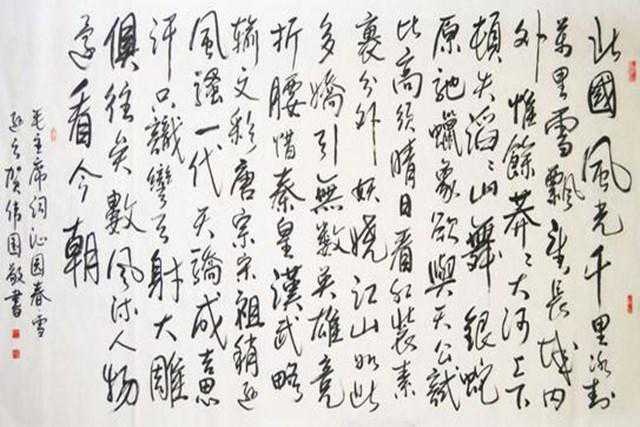 北國風光千里冰封
萬里雪飄望長城内
外惟餘莽ミ大河上下
頓失滔ミ山舞銀蛇
原馳蠟象欲與天公試
比高須晴日看紅裝素
裹分外妖嬈江山如此
多嬌引無數英雄競
折腰惜秦皇漢武略
輸文彩唐宗宋祖稍遜
風騷一代天驕成吉思
汗只識彎弓射大雕
俱往矣數風流人物
還看今朝
毛主席词沁园春雪
贺伟国敬書